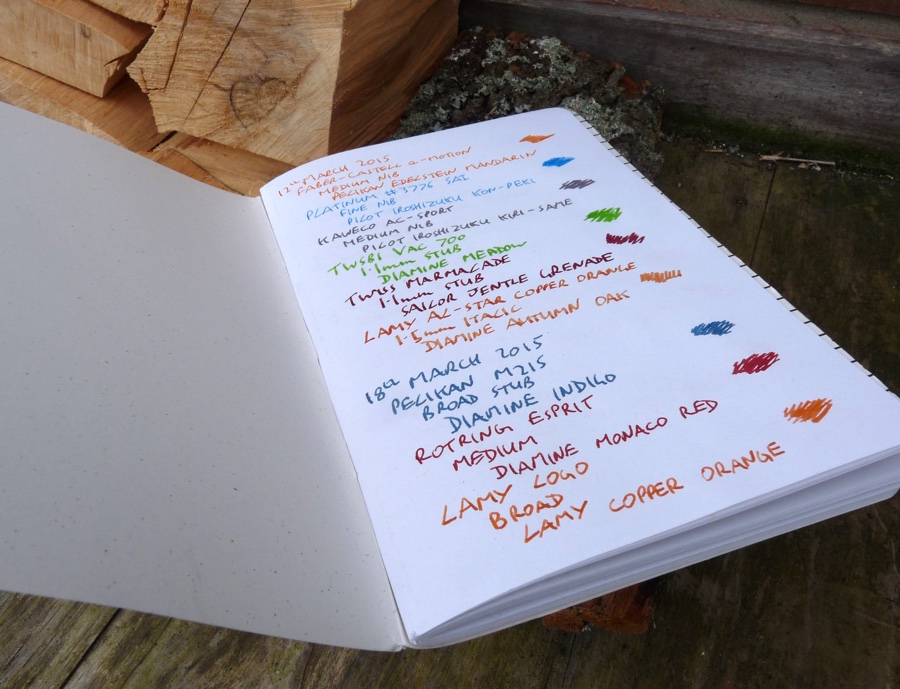 12th MARCH 2015
FABER-CASTELL e-MOTION
MEDIUM NIB
PELIKAN EDELSTEIN MANDARIN
PLATINUM #3776 SAI
FINE NIB
PILOT IROSHIZUKU KON-PEKI
KAWECO AC-SPORT
MEDIUM NIB
PILOT IROSHIZUKU KIRI-SAME
TWSBI VAC 700
1.1mm STUB
DIAMINE MEADOW
TWISS MARMALADE
1.1mm STUB
SAILOR JENTLE GRENADE
LAMY AL-STAR COPPER ORANGE
1.5mm ITALIC
DIAMINE AUTUMN OAK
18th MARCH 2015
PELIKAN M215
BROAD STUB
DIAMINE INDIGO
ROTRING ESPRIT
MEDIUM
DIAMINE MONACO RED
LAMY LOGO
BROAD
LAMY COPPER ORANGE